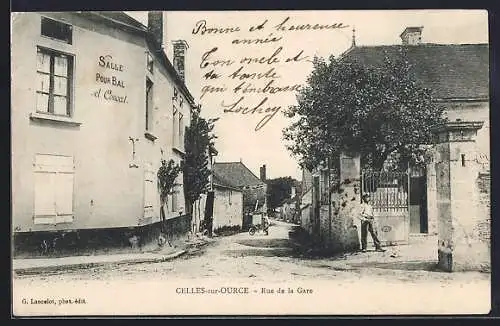 Bonne et heureuse
année
Ton oncle et
ta tante
qui t'embrasse
Lochery
SALLE
POUR BAL
et CONCERT
CELLES-sur-OURCE - Rue de la Gare
G. Lancelot, phot.-édit.